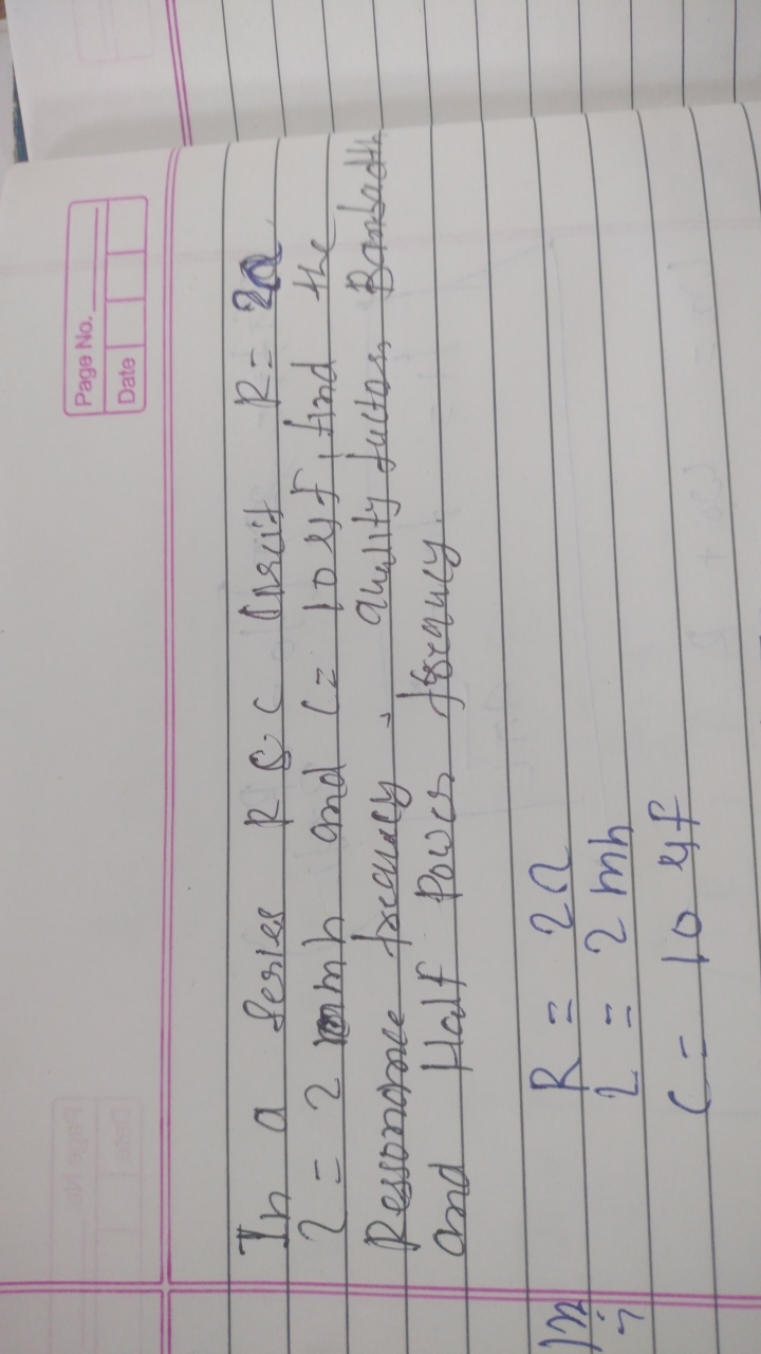 Page No.
Date
In a series RLC Circuit R = 2Ω
L = 2 mh and C = 10 μF, find the
Ressonance frequacy, quality factor, Bandadth
and Half Power frequncy.
R = 2Ω
L = 2 mh
C = 10 μF